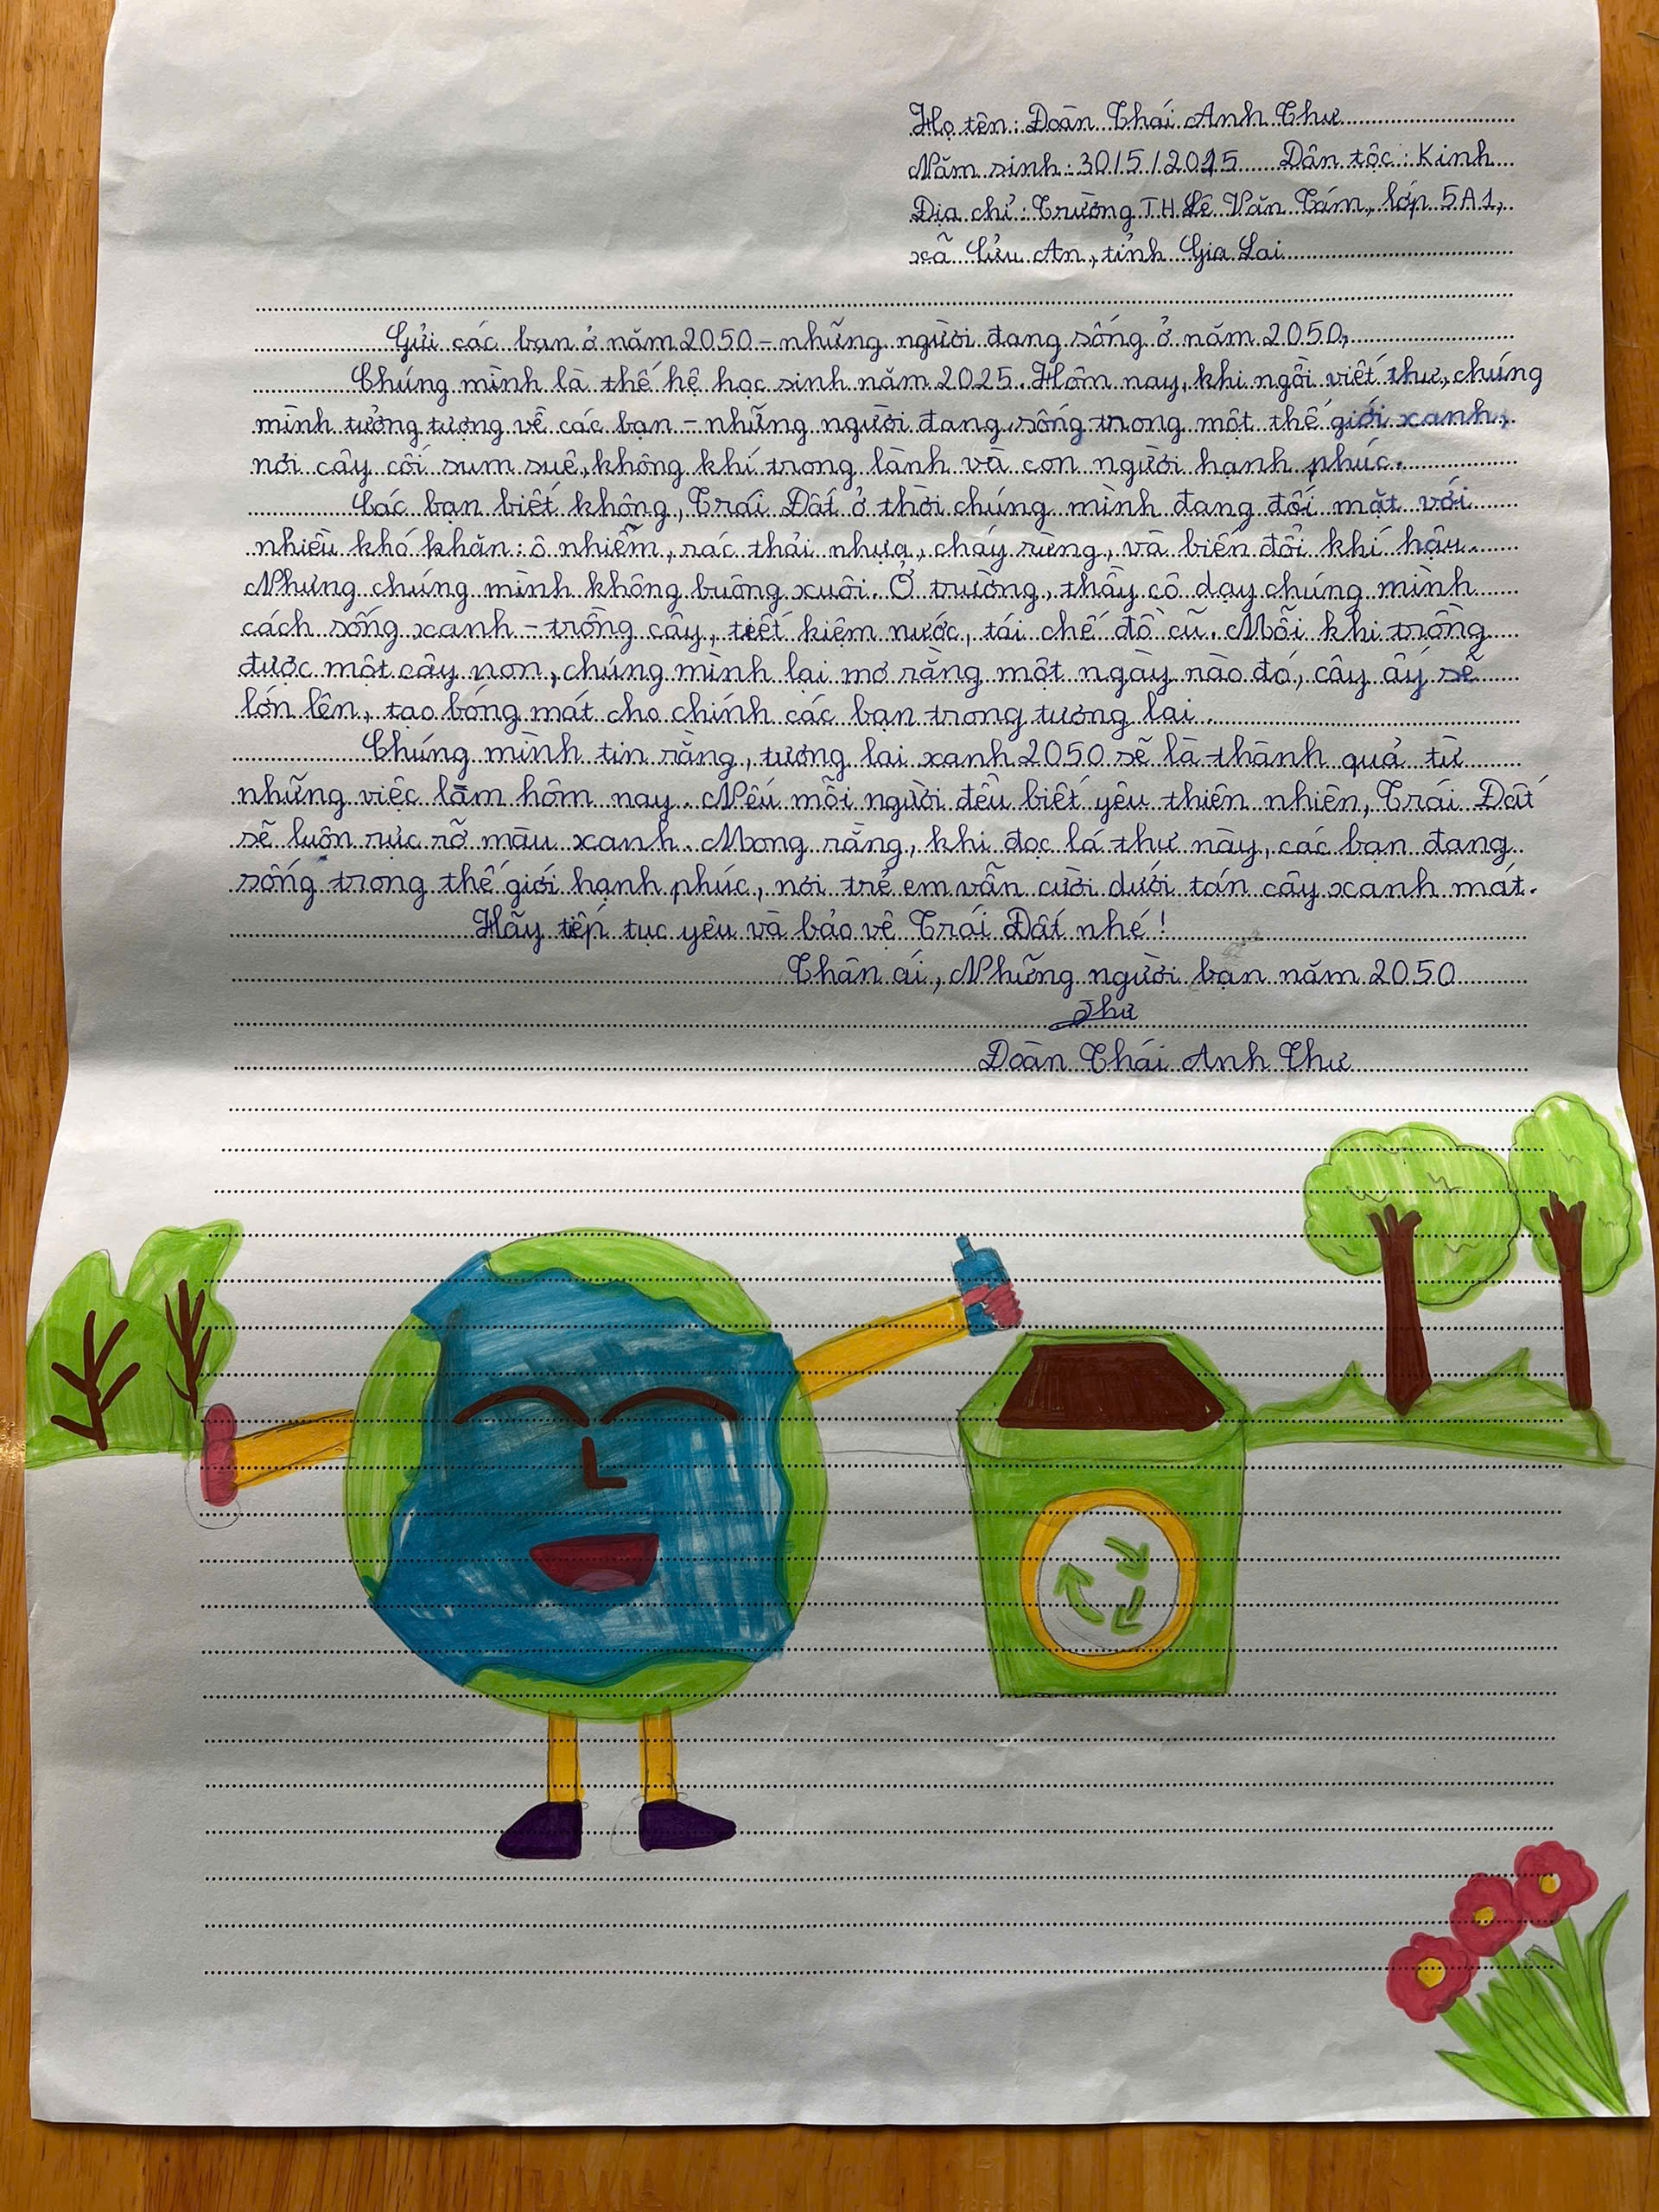 Họ tên: Đoàn Thái Anh Thư
Năm sinh: 30/5/2015 Dân tộc: Kinh
Địa chỉ: Trường TH Lê Văn Tám, lớp 5A1,
xã Cửu An, tỉnh Gia Lai
Gửi các bạn ở năm 2050 - những người đang sống ở năm 2050,
Chúng mình là thế hệ học sinh năm 2025. Hôm nay, khi ngồi viết thư, chúng
mình tưởng tượng về các bạn - những người đang sống trong một thế giới xanh,
nơi cây cối sum suê, không khí trong lành và con người hạnh phúc.
Các bạn biết không, Trái Đất ở thời chúng mình đang đối mặt với
nhiều khó khăn: ô nhiễm, rác thải nhựa, cháy rừng, và biến đổi khí hậu.
Nhưng chúng mình không buông xuôi. Ở trường, thầy cô dạy chúng mình
cách sống xanh - trồng cây, tiết kiệm nước, tái chế đồ cũ. Mỗi khi trồng
được một cây non, chúng mình lại mơ rằng một ngày nào đó, cây ấy sẽ
lớn lên, tạo bóng mát cho chính các bạn trong tương lai.
Chúng mình tin rằng, tương lai xanh 2050 sẽ là thành quả từ
những việc làm hôm nay. Nếu mỗi người đều biết yêu thiên nhiên, Trái Đất
sẽ luôn rực rỡ màu xanh. Mong rằng, khi đọc lá thư này, các bạn đang
sống trong thế giới hạnh phúc, nơi trẻ em vẫn cười dưới tán cây xanh mát.
Hãy tiếp tục yêu và bảo vệ Trái Đất nhé!
Thân ái, Những người bạn năm 2050
Thư
Đoàn Thái Anh Thư